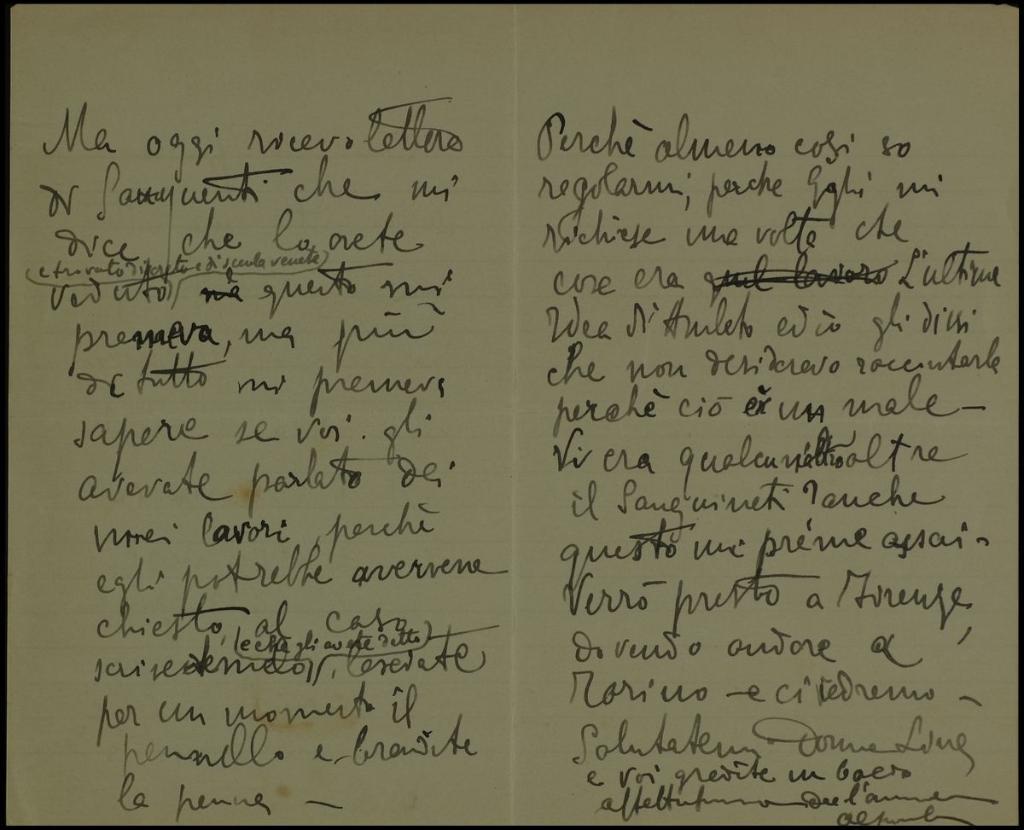 Ma oggi ricevo lettera
di Sanguineti che mi
dice che lo avete
(e trovato discreto e di scuola veneta)
veduto, ma questo mi
premeva, ma più
di tutto mi premeva
sapere se voi gli
avevate parlato dei
miei lavori, perchè
egli potrebbe avervene
chiesto, al caso
(e che gli avete detto)
scrivetemelo, lasciate
per un momento il
pennello e brandite
la penna —
Perchè almeno così so
regolarmi, perche Egli mi
richiese una volta che
cosa era quel lavoro L'ultima
Idea di Amleto ed io gli dissi
che non desideravo raccontarla
perchè ciò è un male —
Vi era qualcun altro oltre
il Sanguineti? anche
questo mi préme assai.
Verrò presto a Firenze,
dovendo andare a
Torino — e ci vedremo —
Salutatemi Donna Lina
e voi gradite un bacio
dall'amico